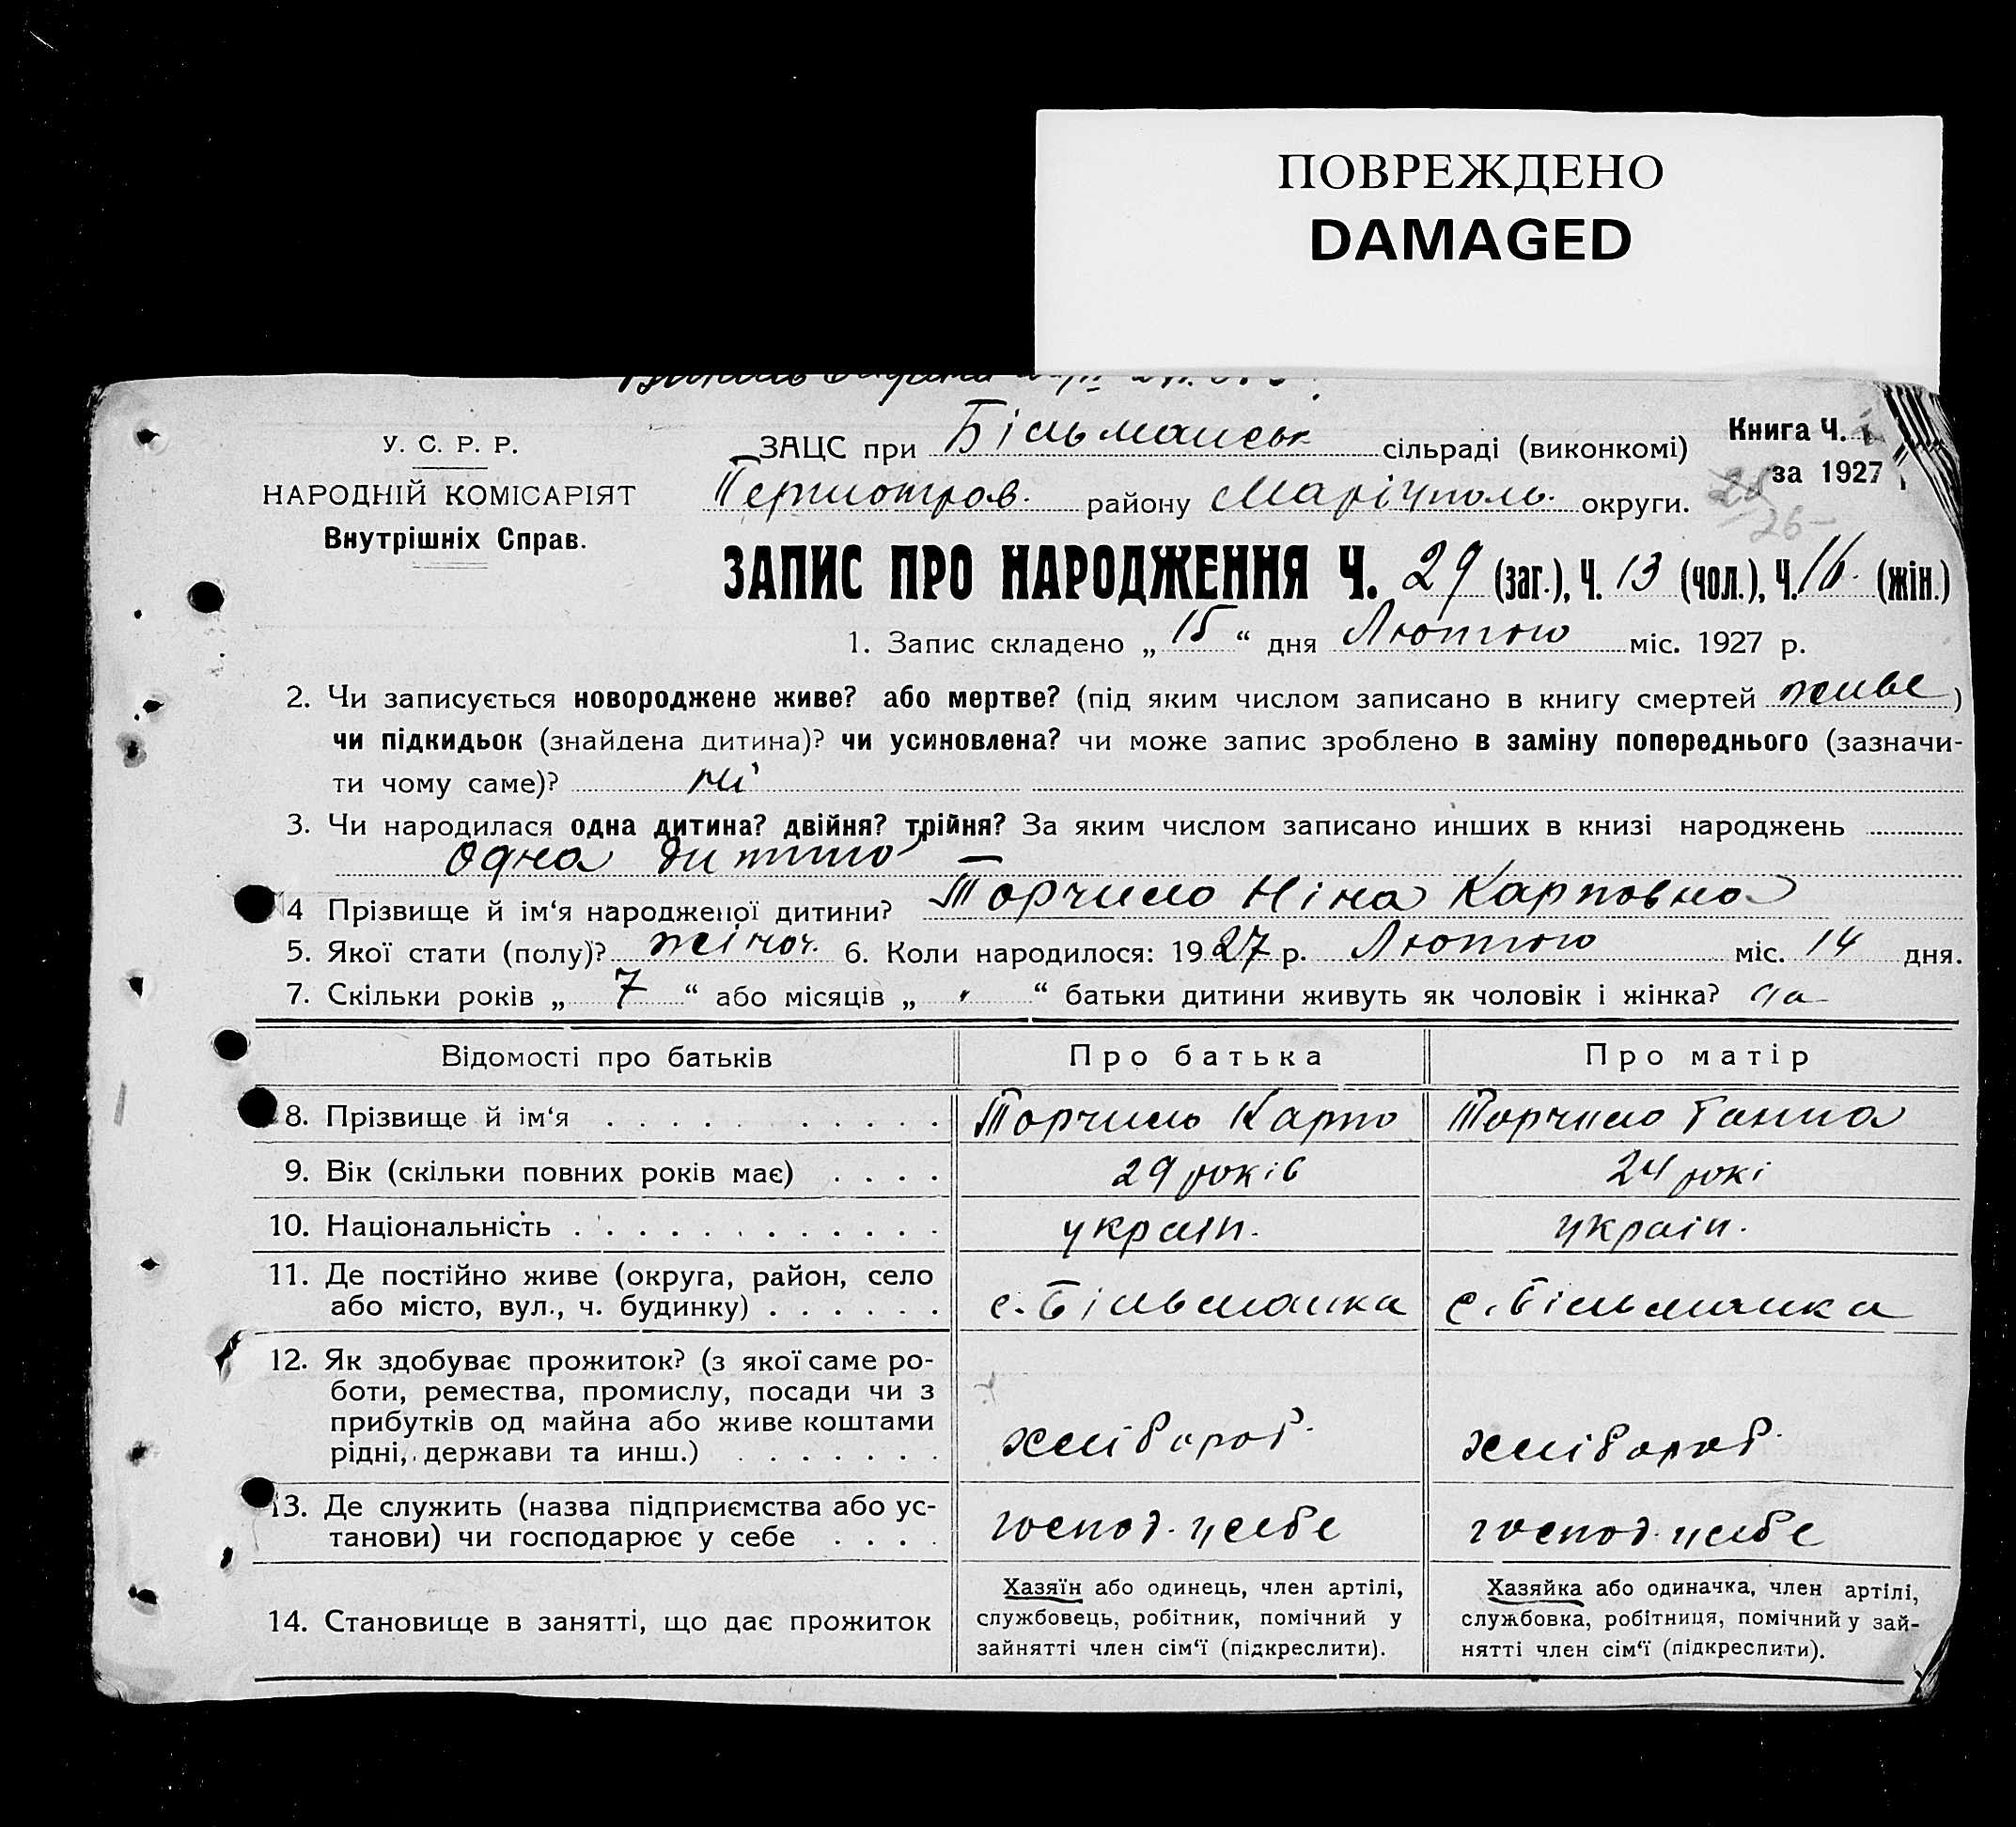 ПОВРЕЖДЕНО
DAMAGED
У. С. Р. Р.
НАРОДНІЙ КОМІСАРІЯТ
Внутрішніх Справ.
ЗАЦС при Більманськ сільраді (виконкомі)
районy Маріупол. округи.
Книга Ч.
за 1927
26
ЗАПИС ПРО НАРОДЖЕННЯ Ч. 29 (заг.), Ч. 13 (чол.), Ч. 16. (жін.)
1. Запис складено „ 15 “ дня Лютого міс. 1927 р.
2. Чи записується новороджене живе? або мертве? (під яким числом записано в книгу смертей живе)
чи підкидьок (знайдена дитина)? чи усиновлена? чи може запис зроблено в заміну попереднього (зазначи-
ти чому саме)? ні
3. Чи народилася одна дитина? двійня? трійня? За яким числом записано инших в книзі народжень
Одна дитина
4 Прізвище й ім‘я народженої дитини? Торчило Ніна Карповна
5. Якої стати (полу)? жіноч. 6. Коли народилося: 1927 р. Лютого міс. 14 дня.
7. Скільки років „ 7 “ або місяців „ “ батьки дитини живуть як чоловік і жінка? да
Відомості про батьків Про батька Про матір
8. Прізвище й ім‘я Торчило Карпо Торчило Ганна
9. Вік (скільки повних років має) 29 років 24 рокі
10. Національність україн. україн.
11. Де постійно живе (округа, район, село
або місто, вул., ч. будинку) с. Більманка с. Більманка
12. Як здобуває прожиток? (з якої саме ро-
боти, ремества, промислу, посади чи з
прибутків од майна або живе коштами
рідні, держави та инш.) хлібороб. хлібороб.
13. Де служить (назва підприємства або ус-
танови) чи господарює у себе господ. у себе господ. у себе
14. Становище в занятті, що дає прожиток
Хазяїн або одинець, член артілі,
службовець, робітник, помічний у
зайнятті член сім‘ї (підкреслити).
Хазяйка або одиначка, член артілі,
службовка, робітниця, помічний у зай-
нятті член сім‘ї (підкреслити).